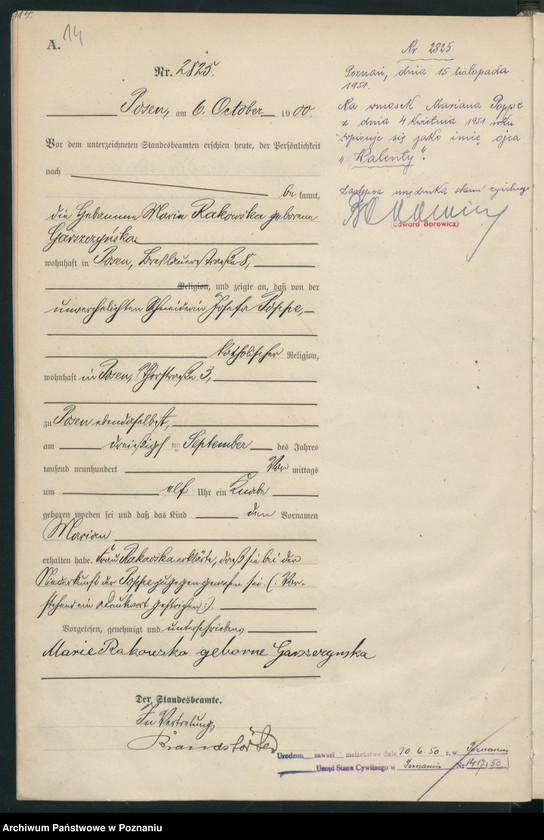 114.
A.
14
Nr. 2825.
Posen, am 6. October 1900.
Vor dem unterzeichneten Standesbeamten erschien heute, der Persönlichkeit
nach
bekannt,
die Hebamme Maria Rakowska geborene
Garszczyńska
wohnhaft in Posen, Breslauerstraße 8,
Religion, und zeigte an, daß von der
unverehelichten Schneiderin Josefa Poppe,
katholischer Religion,
wohnhaft in Posen, Thorstraße 3,
zu Posen ebendaselbst,
am dreißigsten September des Jahres
tausend neunhundert Vormittags
um elf Uhr ein Knabe
geboren worden sei und daß das Kind den Vornamen
Marian
erhalten habe. Frau Rakowska erklärte, daß sie bei der
Niederkunft der Poppe zugegen gewesen sei. (: Vor-
stehend ein Druckwort gestrichen :).
Vorgelesen, genehmigt und unterschrieben
Marie Rakowska geborne Garszczynska
Der Standesbeamte.
In Vertretung,
Nr. 2825
Poznań, dnia 15 listopada
1951.
Na wniosek Mariana Poppe
z dnia 4 kwietnia 1951 roku
wpisuje się jako imię ojca
"Walenty".
Zastępca urzędnika stanu cywilnego
(Edward Borowicz)
Urodzon zawarł małżeństwo dnia 10.6.50 r. w Poznaniu
Urząd Stanu Cywilnego w Poznaniu Nr 1417/50
Archiwum Państwowe w Poznaniu